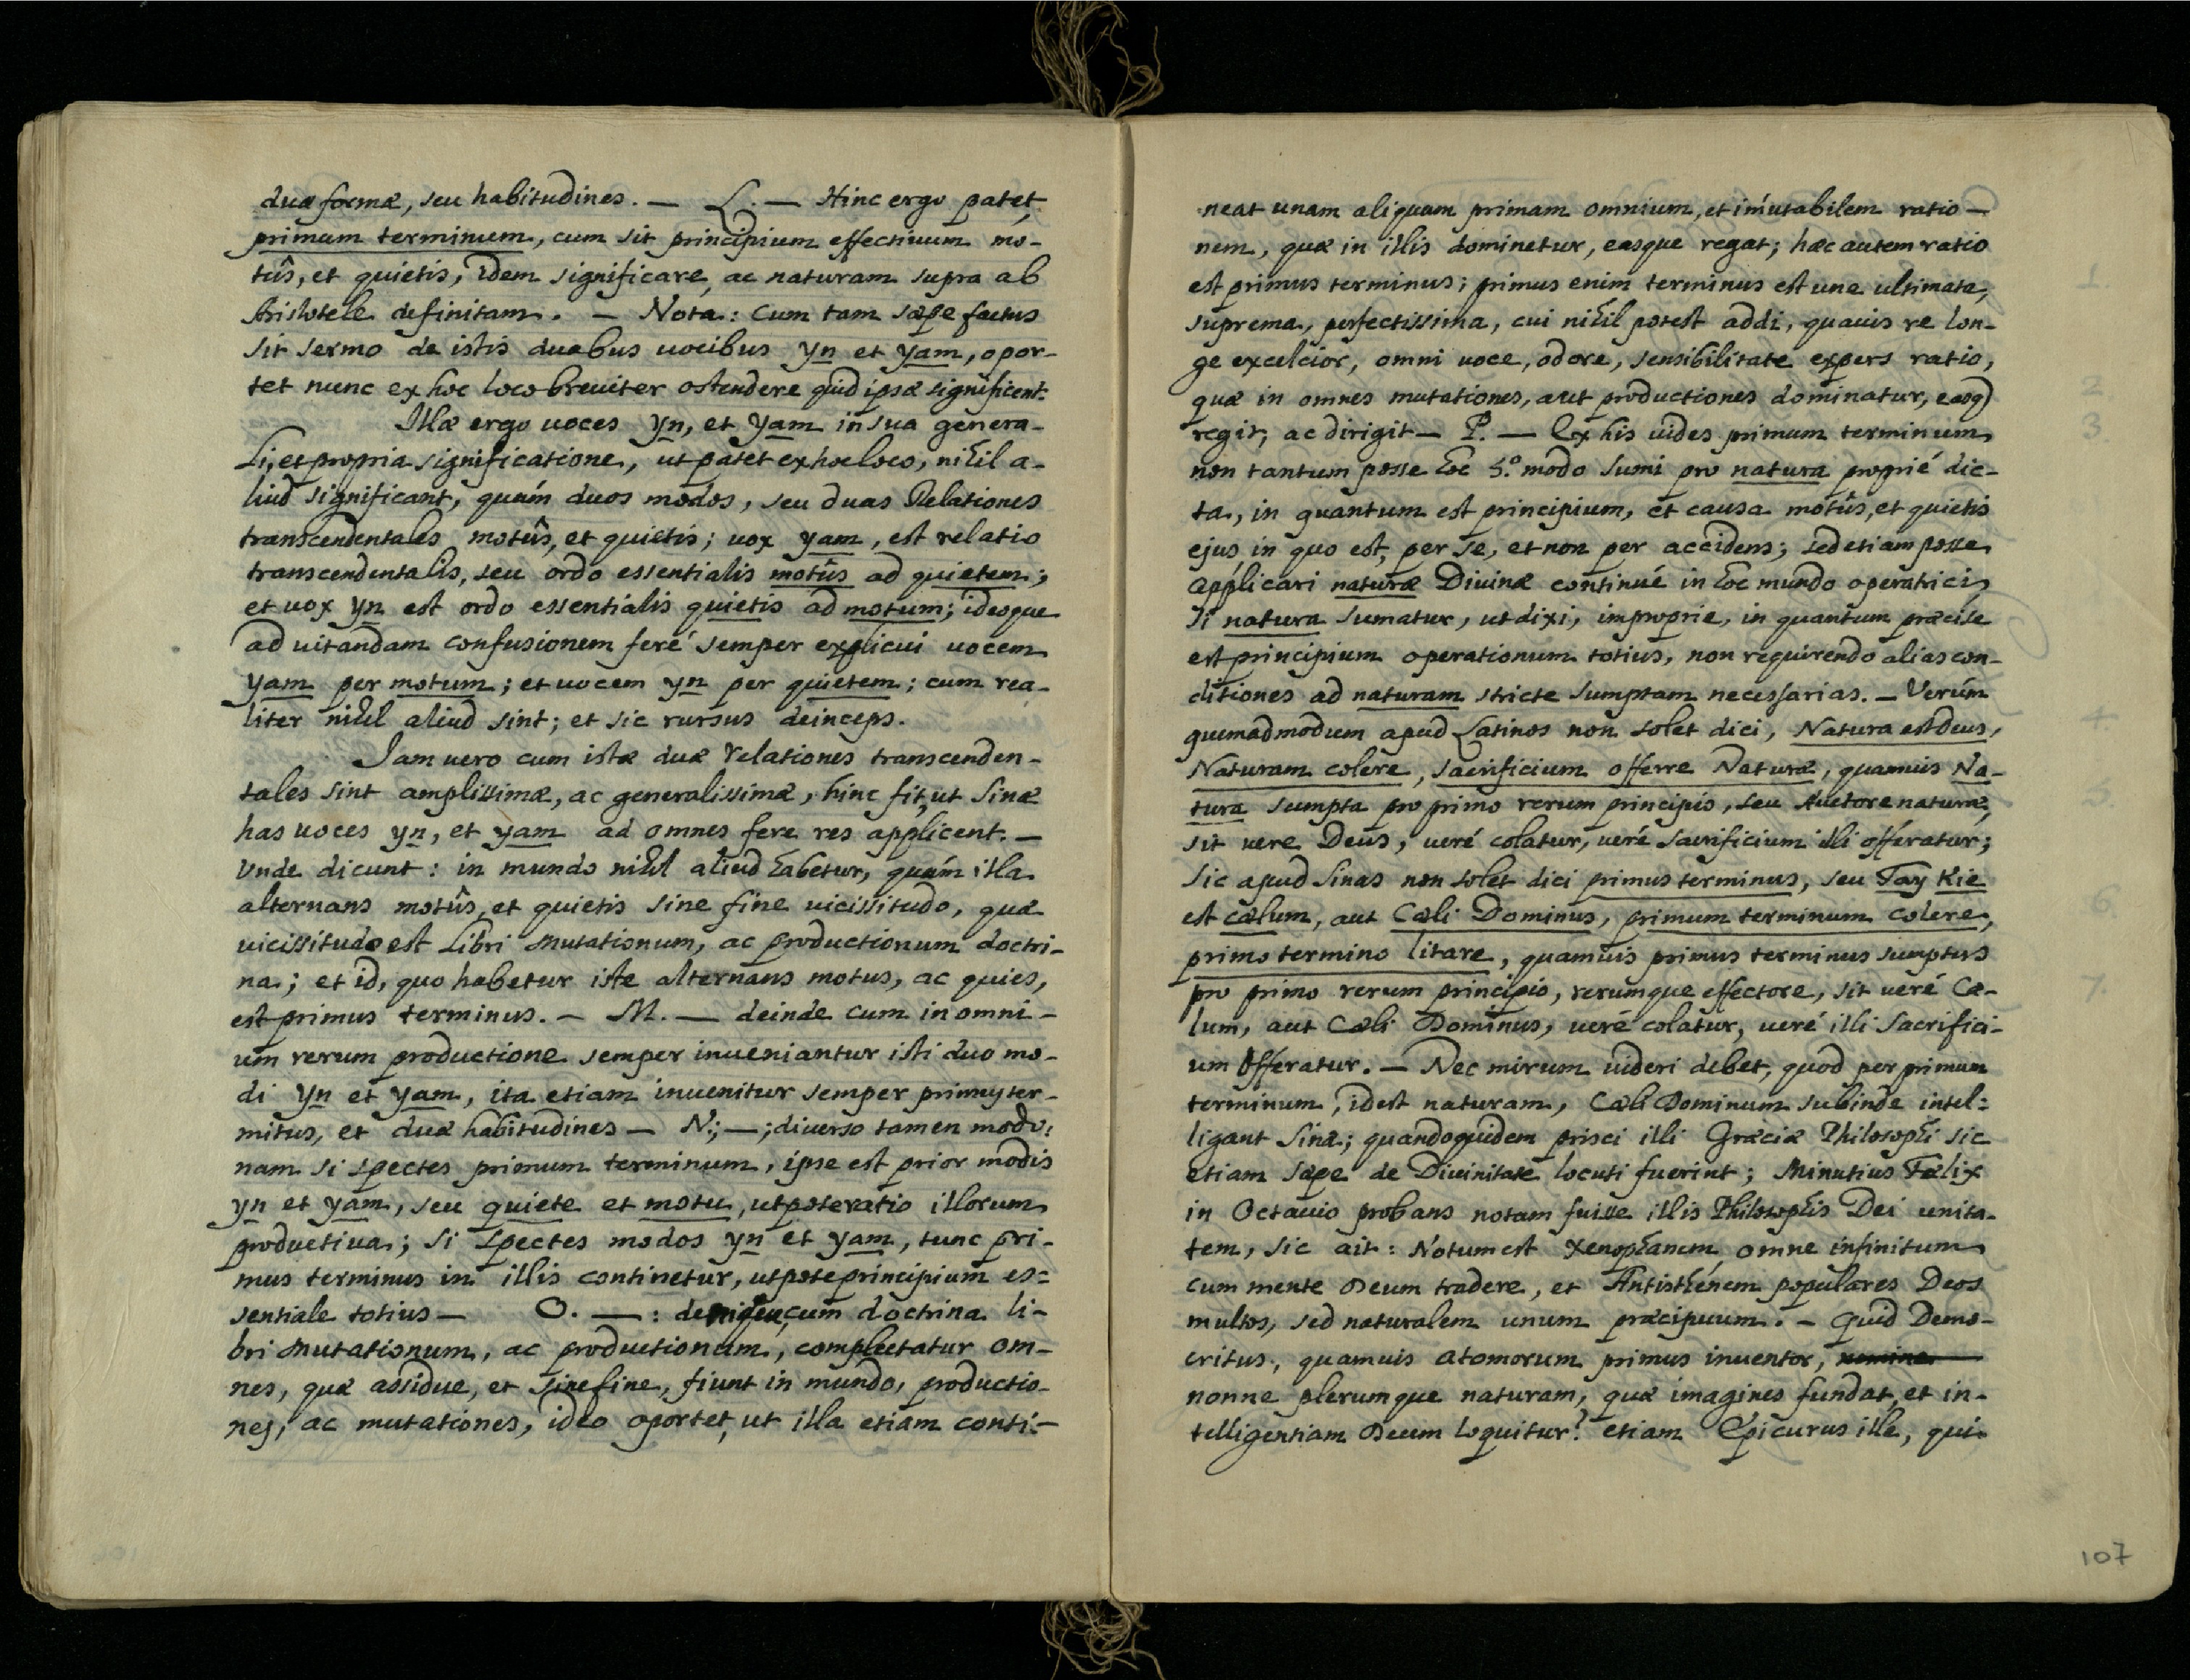 duæ formæ, seu habitudines. — L. — Hinc ergo patet
primum terminum, cum sit principium effectiuum mo-
tûs, et quietis, idem significare, ac naturam supra ab
Aristotele definitam. — Nota: Cum tam sæpe factus
sit sermo de istis duabus uocibus yn et yam, opor-
tet nunc ex hoc loco breuiter ostendere quid ipsæ significent.
Illæ ergo uoces yn, et yam in sua genera-
li, et propria significatione, ut patet ex hoc loco, nihil a-
liud significant, quám duos modos, seu duas Relationes
transcendentales motûs, et quietis; uox yam, est relatio
transcendentalis, seu ordo essentialis motûs ad quietem;
et uox yn est ordo essentialis quietis ad motum; ideoque
ad uitandam confusionem feré semper explicui uocem
yam per motum; et uocem yn per quietem; cum rea-
liter nihil aliud sint; et sic rursus deinceps.
Jam uero cum istæ duæ relationes transcenden-
tales sint amplissimæ, ac generalissimæ, hinc fit, ut Sinæ
has uoces yn, et yam ad omnes fere res applicent. —
Vnde dicunt: in mundo nihil aliud habetur, quám illa
alternans motûs, et quietis sine fine uicissitudo, quæ
uicissitudo est Libri mutationum, ac productionum doctri-
na; et id, quo habetur iste alternans motus, ac quies,
est primus terminus. — M. — deinde cum in omni-
um rerum productione semper inueniantur isti duo mo-
di yn et yam, ita etiam inuenitur semper primus ter-
mitus, et duæ habitudines — N.; —; diuerso tamen modo:
nam si spectes primum terminum, ipse est prior modis
yn et yam, seu quiete et motu, utpote ratio illorum
productiua; si spectes modos yn et yam, tunc pri-
mus terminus in illis continetur, utpote principium es=
sentiale totius — O. — : denique, cum doctrina li-
bri mutationum, ac productionum, complectatur om-
nes, quæ assidue, et sine fine, fiunt in mundo, productio-
nes, ac mutationes, ideo oportet, ut illa etiam conti-
neat unam aliquam primam omnium, et im̃utabilem ratio-
nem, quæ in illis dominetur, easque regat; hæc autem ratio
est primus terminus; primus enim terminus est une ultimata,
suprema, perfectissima, cui nihil potest addi, quauis re lon-
ge excelcior, omni uoce, odore, sensibilitate expers ratio,
quæ in omnes mutationes, aut productiones dominatur, easq)
regit, ac dirigit — P. — Ex his uides primum terminum
non tantum posse hoc 5.º modo sumi pro natura proprié dic-
ta, in quantum est principium, et causa motûs, et quietis
ejus in quo est, per se, et non per accidens; sed etiam posse
applicari naturæ Diuinæ continué in hoc mundo operatrici,
si natura sumatur, ut dixi, improprie, in quantum præcise
est principium operationum totius, non requirendo alias con-
ditiones ad naturam stricte sumptam necessarias. — Verúm
quemadmodum apud Latinos non solet dici, Natura est deus,
Naturam colere, sacrificium offerre Naturæ, quamuis Na-
tura sumpta pro primo rerum principio, seu Auctore naturæ,
sit uere Deus, ueré colatur, ueré sacrificium illi offeratur;
sic apud Sinas non solet dici primus terminus, seu Tay Kie
est cælum, aut Cæli Dominus, primum terminum colere,
primo termino litare, quamuis primus terminus sumptus
pro primo rerum principio, rerumque effectore, sit ueré Cæ-
lum, aut Cæli Dominus, ueré colatur, ueré illi sacrifici-
um offeratur. — Nec mirum uideri debet, quod per primum
terminum, idest naturam, Cæli Dominum subinde intel=
ligant Sinæ; quandoquidem prisci illi Græciæ Philosophi sic
etiam sæpe de Diuinitate locuti fuerint; Minutius Fælix
in Octauio probans notam fuisse illis Philosophis Dei unita-
tem, sic ait: Notum est Xenophanem omne infinitum
cum mente Deum tradere, et Antisthénem populares Deos
multos, sed naturalem unum præcipuum. — Quid Demo-
critus, quamuis atomorum primus inuentor,
nonne plerumque naturam, quæ imagines fundat, et in-
telligentiam Deum loquitur? etiam Epicurus ille, qui
107